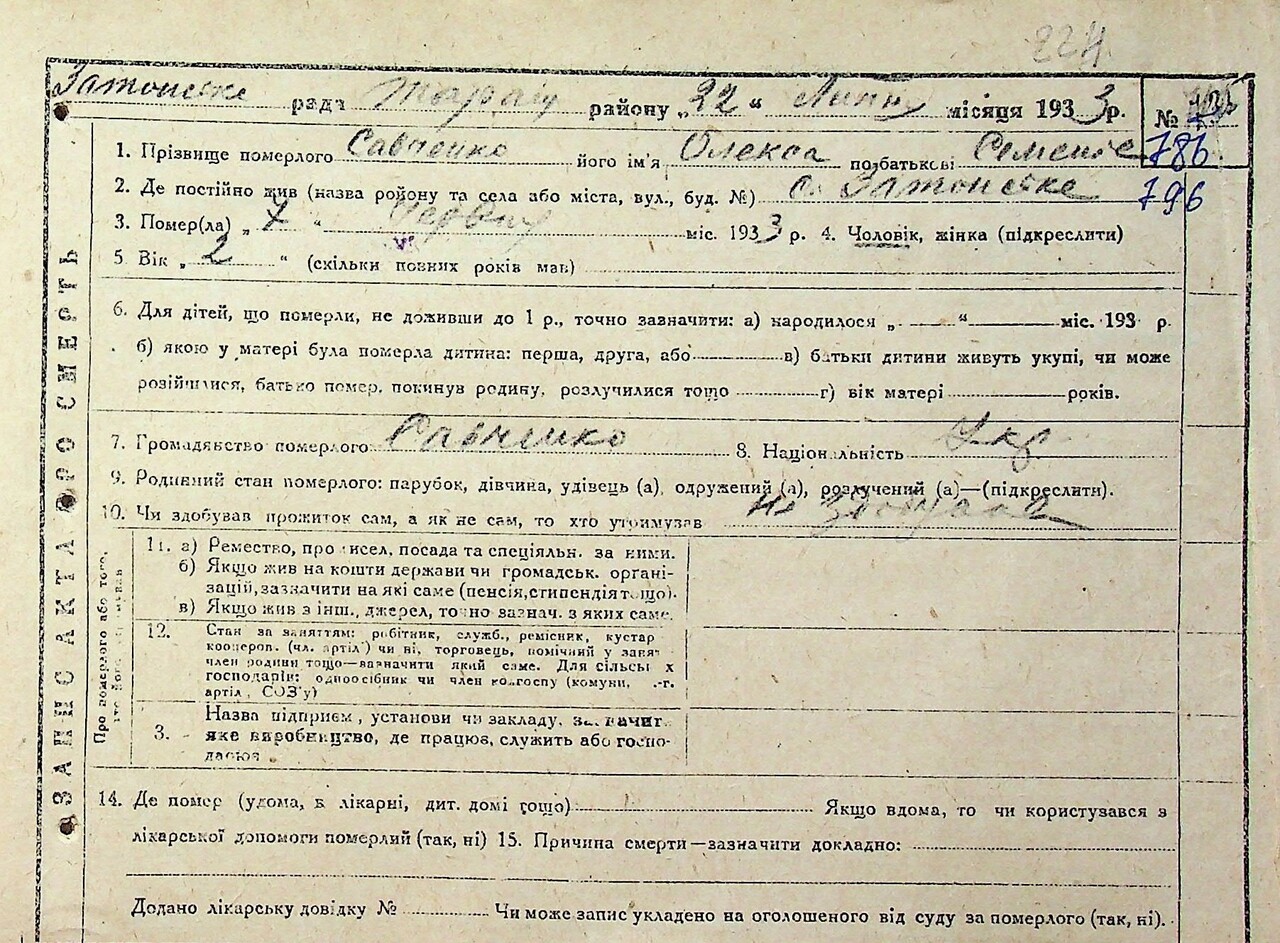 224
Затонське рада району „22“ Липня місяця 1933 р. №
786
796
1. Прізвище померлого Савченко його ім'я Олекса по батькові Семенів
2. Де постійно жив (назва ройону та села або міста, вул., буд. №) с. Затонське
3. Помер(ла) „7“ Червня міс. 1933 р. 4. Чоловік, жінка (підкреслити)
5. Вік „2“ (скільки повних років мав)
6. Для дітей, що померли, не доживши до 1 р., точно зазначити: а) народилося „ — “ — міс. 193 р.
б) якою у матері була померла дитина: перша, друга, або в) батьки дитини живуть укупі, чи може
розійшлися, батько помер, покинув родину, розлучилися тощо г) вік матері років.
7. Громадянство померлого Савченко 8. Національність Укр
9. Родинний стан померлого: парубок, дівчина, удівець (а), одружений (а), розлучений (а)—(підкреслити).
10. Чи здобував прожиток сам, а як не сам, то хто утримував не здобував
ЗАПИС АКТА ПРО СМЕРТЬ
Про померлого або того,
хто його утримував
11. а) Ремество, промисел, посада та спеціяльн. за ними.
б) Якщо жив на кошти держави чи громадськ. органі-
зацій, зазначити на які саме (пенсія, стипендія тощо).
в) Якщо жив з інш., джерел, точно зазнач. з яких саме.
12. Стан за заняттям: робітник, служб., ремісник, кустар
кооперов. (чл. артілі) чи ні, торговець, помічний у занят
член родини тощо—зазначити який саме. Для сільських
господарів: одноосібник чи член колгоспу (комуни, с.-г.
артілі, СОЗ'у)
3. Назва підприєм., установи чи закладу, зазначит.
яке виробництво, де працює, служить або госпо-
дарює
14. Де помер (удома, в лікарні, дит. домі тощо) Якщо вдома, то чи користувався з
лікарської допомоги померлий (так, ні) 15. Причина смерти—зазначити докладно:
Додано лікарську довідку № Чи може запис укладено на оголошеного від суду за померлого (так, ні).